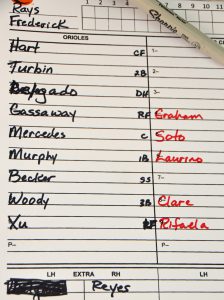 Rays
Frederick
1 2 3 4 5 6 7 8 9 10 11
ORIOLES
Hart CF 1-
Turbin 2B 2-
Delgado DH 3-
Gassaway RF Graham
Mercedes C Soto
Murphy 1B Laurino
Becker SS 7-
Woody 3B Clare
Xu LF Rifaela
P- P-
LH EXTRA RH LH
Reyes